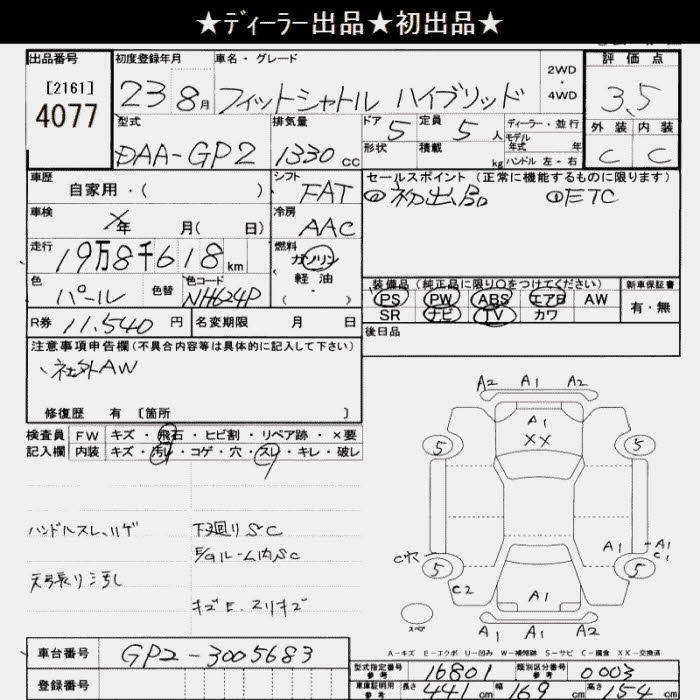 ★ディーラー出品★初出品★
出品番号
[2161]
4077
初度登録年月
23 8月
車名・グレード
フィットシャトル ハイブリッド
2WD
・
4WD
評価点
3.5
外装 内装
C C
型式
DAA-GP2
排気量
1330 cc
ドア 5
形状
定員 5 人
積載 kg
ディーラー・並行
モデル
年式 年
ハンドル 左・右
車歴
自家用・( )
シフト
FAT
車検
年 月( 日)
冷房
AAC
走行
19万8千618 km
燃料
ガソリン
・
軽油
( )
色
パール
色替
色コード
NH624P
R券 11,540 円
名変期限 月 日
セールスポイント (正常に機能するものに限ります)
②初出品 ①ETC
装備品 (純正品に限り○をつけてください)
PS PW ABS エアB AW
SR ナビ TV カワ
新車保証書
有・無
後日品
注意事項申告欄 (不具合内容等は具体的に記入して下さい)
、社外AW
修復歴 有 [箇所 ]
検査員 FW キズ・飛石・ヒビ割・リペア跡・×要
記入欄 内装 キズ・汚れ・コゲ・穴・スレ・キレ・破レ
ハンドルスレ、ハゲ
下廻りSC
E/Gルーム内SC
天張り汚し
A2 A1 A2
A1
XX
5 5
5 5
A1
A1
C1
C2
A1
A1 A1 A1
スペア
A−キズ E−エクボ U−凹み W−補修跡 S−サビ C−腐食 XX−交換済
車台番号 GP2-3005683
登録番号
型式指定番号
参考
16801
類別区分番号
参考
0003
車庫証明用
参考
長さ 441 cm 幅 169 cm 高さ 154 cm